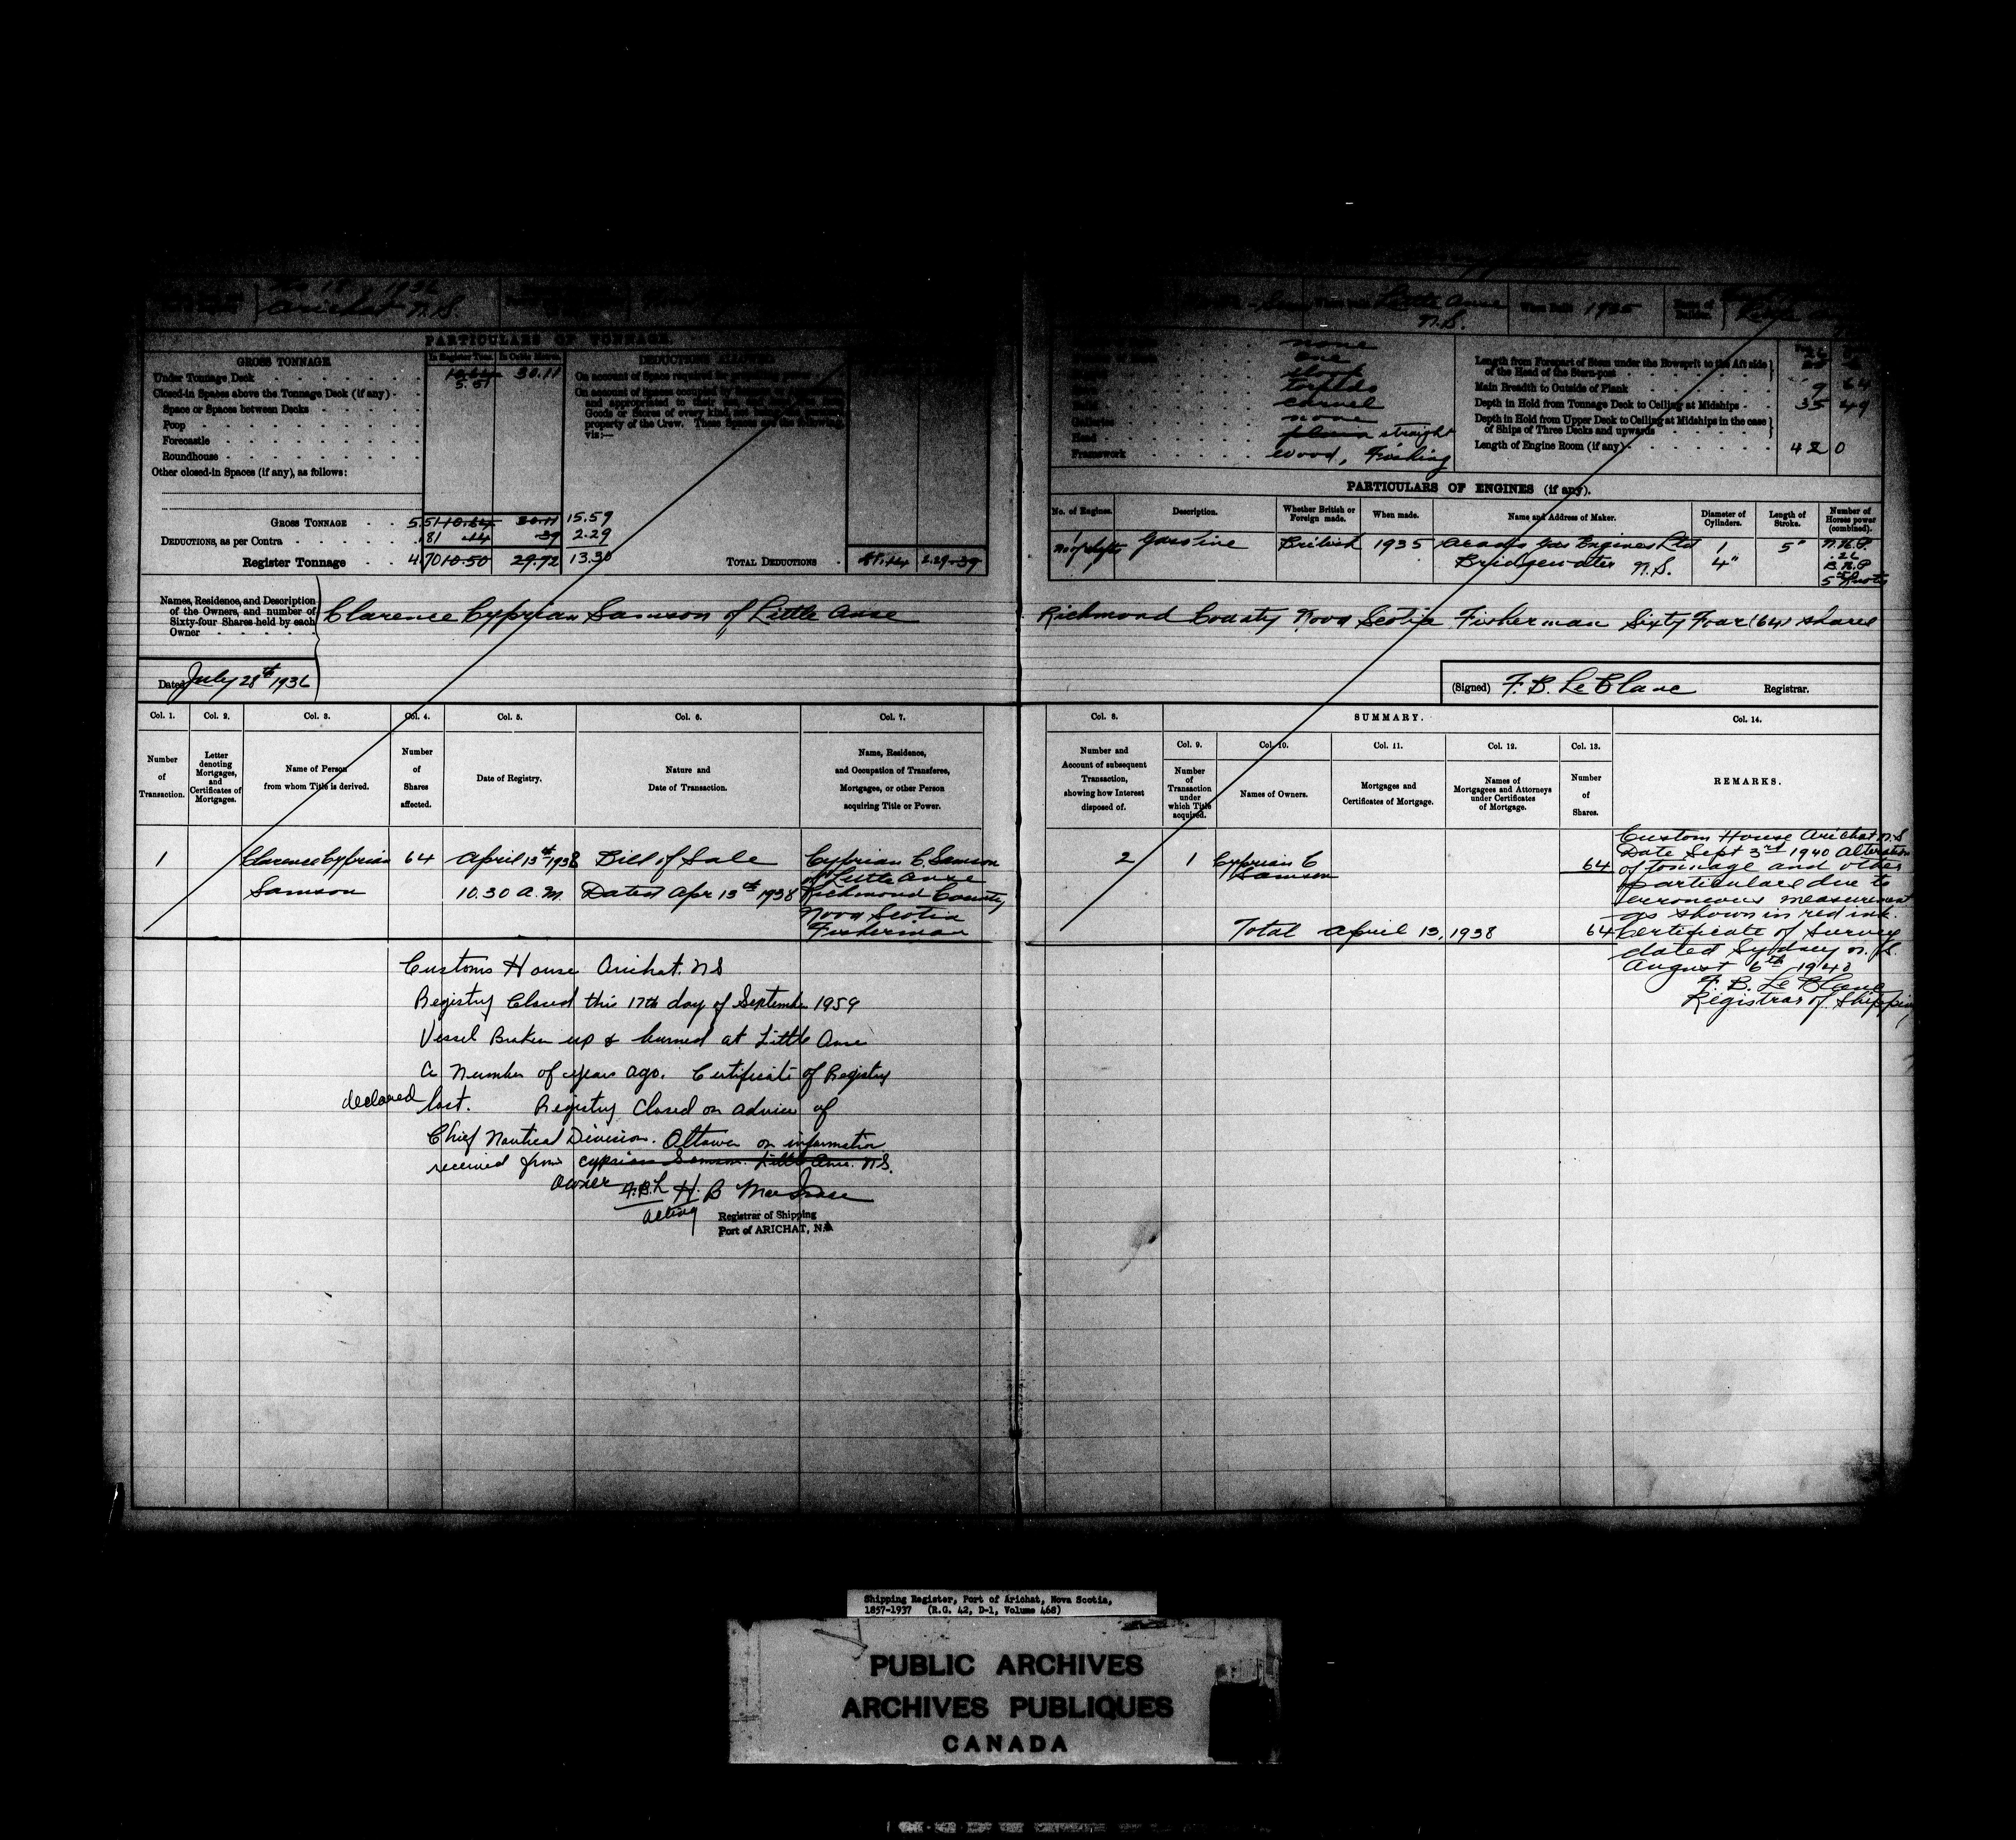 1936
Arichat N.S.
Little Anse
N.S.
1935
PARTICULARS OF TONNAGE
GROSS TONNAGE
In Register Tons. In Cubic Metres.
DEDUCTIONS ALLOWED
Under Tonnage Deck 10.64 30.11
5.51
Closed-in Spaces above the Tonnage Deck (if any)
Space or Spaces between Decks
Poop
Forecastle
Roundhouse
Other closed-in Spaces (if any), as follows:
On account of Space required for
Goods or Stores of every kind
property of the Crew. These Spaces are the following,
viz:—
GROSS TONNAGE 5.51 10.64 30.11 15.59
DEDUCTIONS, as per Contra .81 .14 .39 2.29
Register Tonnage 4.70 10.50 29.72 13.30
TOTAL DEDUCTIONS .81 .14 2.29 .39
none
one
sloop
torpedo
carvel
Galleries none
Head plain straight
Framework wood, Fishing
Length from Forepart of Stem under the Bowsprit to the Aft side
of the Head of the Stern-post
Main Breadth to Outside of Plank 9 64
Depth in Hold from Tonnage Deck to Ceiling at Midships 35 49
Depth in Hold from Upper Deck to Ceiling at Midships in the case
of Ships of Three Decks and upwards
Length of Engine Room (if any) 42 0
PARTICULARS OF ENGINES (if any).
No. of Engines. Description. Whether British or Foreign made. When made. Name and Address of Maker. Diameter of Cylinders. Length of Stroke. Number of Horses power (combined).
1 Gasoline British 1935 Acadia Gas Engines Ltd 1 5" N.H.P.
No of shafts Bridgewater N.S. 4" .26
B.H.P.
5 Knots
Names, Residence, and Description
of the Owners, and number of
Sixty-four Shares held by each
Owner
Clarence Cyprian Samson of Little Anse Richmond County Nova Scotia Fisherman Sixty Four (64) shares
Dated July 28th 1936
(Signed) F. B. LeBlanc Registrar.
Col. 1. Col. 2. Col. 3. Col. 4. Col. 5. Col. 6. Col. 7.
Number of Transaction.
Letter denoting Mortgages, and Certificates of Mortgages.
Name of Person from whom Title is derived.
Number of Shares affected.
Date of Registry.
Nature and Date of Transaction.
Name, Residence, and Occupation of Transferee, Mortgages, or other Person acquiring Title or Power.
Col. 8. SUMMARY. Col. 14.
Col. 9. Col. 10. Col. 11. Col. 12. Col. 13.
Number and Account of subsequent Transaction, showing how Interest disposed of.
Number of Transaction under which Title acquired.
Names of Owners.
Mortgages and Certificates of Mortgage.
Names of Mortgagees and Attorneys under Certificates of Mortgage.
Number of Shares.
REMARKS.
1 Clarence Cyprian 64 April 13th 1938 Bill of Sale Cyprian C Samson
Samson 10.30 A.M. Dated Apr 13th 1938 of Little Anse
Richmond County
Nova Scotia
Fisherman
2 1 Cyprian C 64
Samson
Total April 13, 1938 64
Custom House Arichat N.S
Date Sept 3rd 1940 Alteration
of tonnage and other
particulars due to
erroneous measurement
as shown in red ink.
Certificate of Survey
dated Sydney N.S.
August 6th 1940
F. B. LeBlanc
Registrar of Shipping
Customs House Arichat. NS
Registry Closed this 17th day of September 1959
Vessel Broken up & burned at Little Anse
a Number of years ago. Certificate of Registry
declared lost. Registry Closed on advice of
Chief Nautical Division. Ottawa on information
received from Cyprian Samson. Little Anse. NS.
Owner
H. B
Acting
Registrar of Shipping
Port of ARICHAT, N.S.
Shipping Register, Port of Arichat, Nova Scotia,
1857-1937 (R.G. 42, D-1, Volume 468)
PUBLIC ARCHIVES
ARCHIVES PUBLIQUES
CANADA